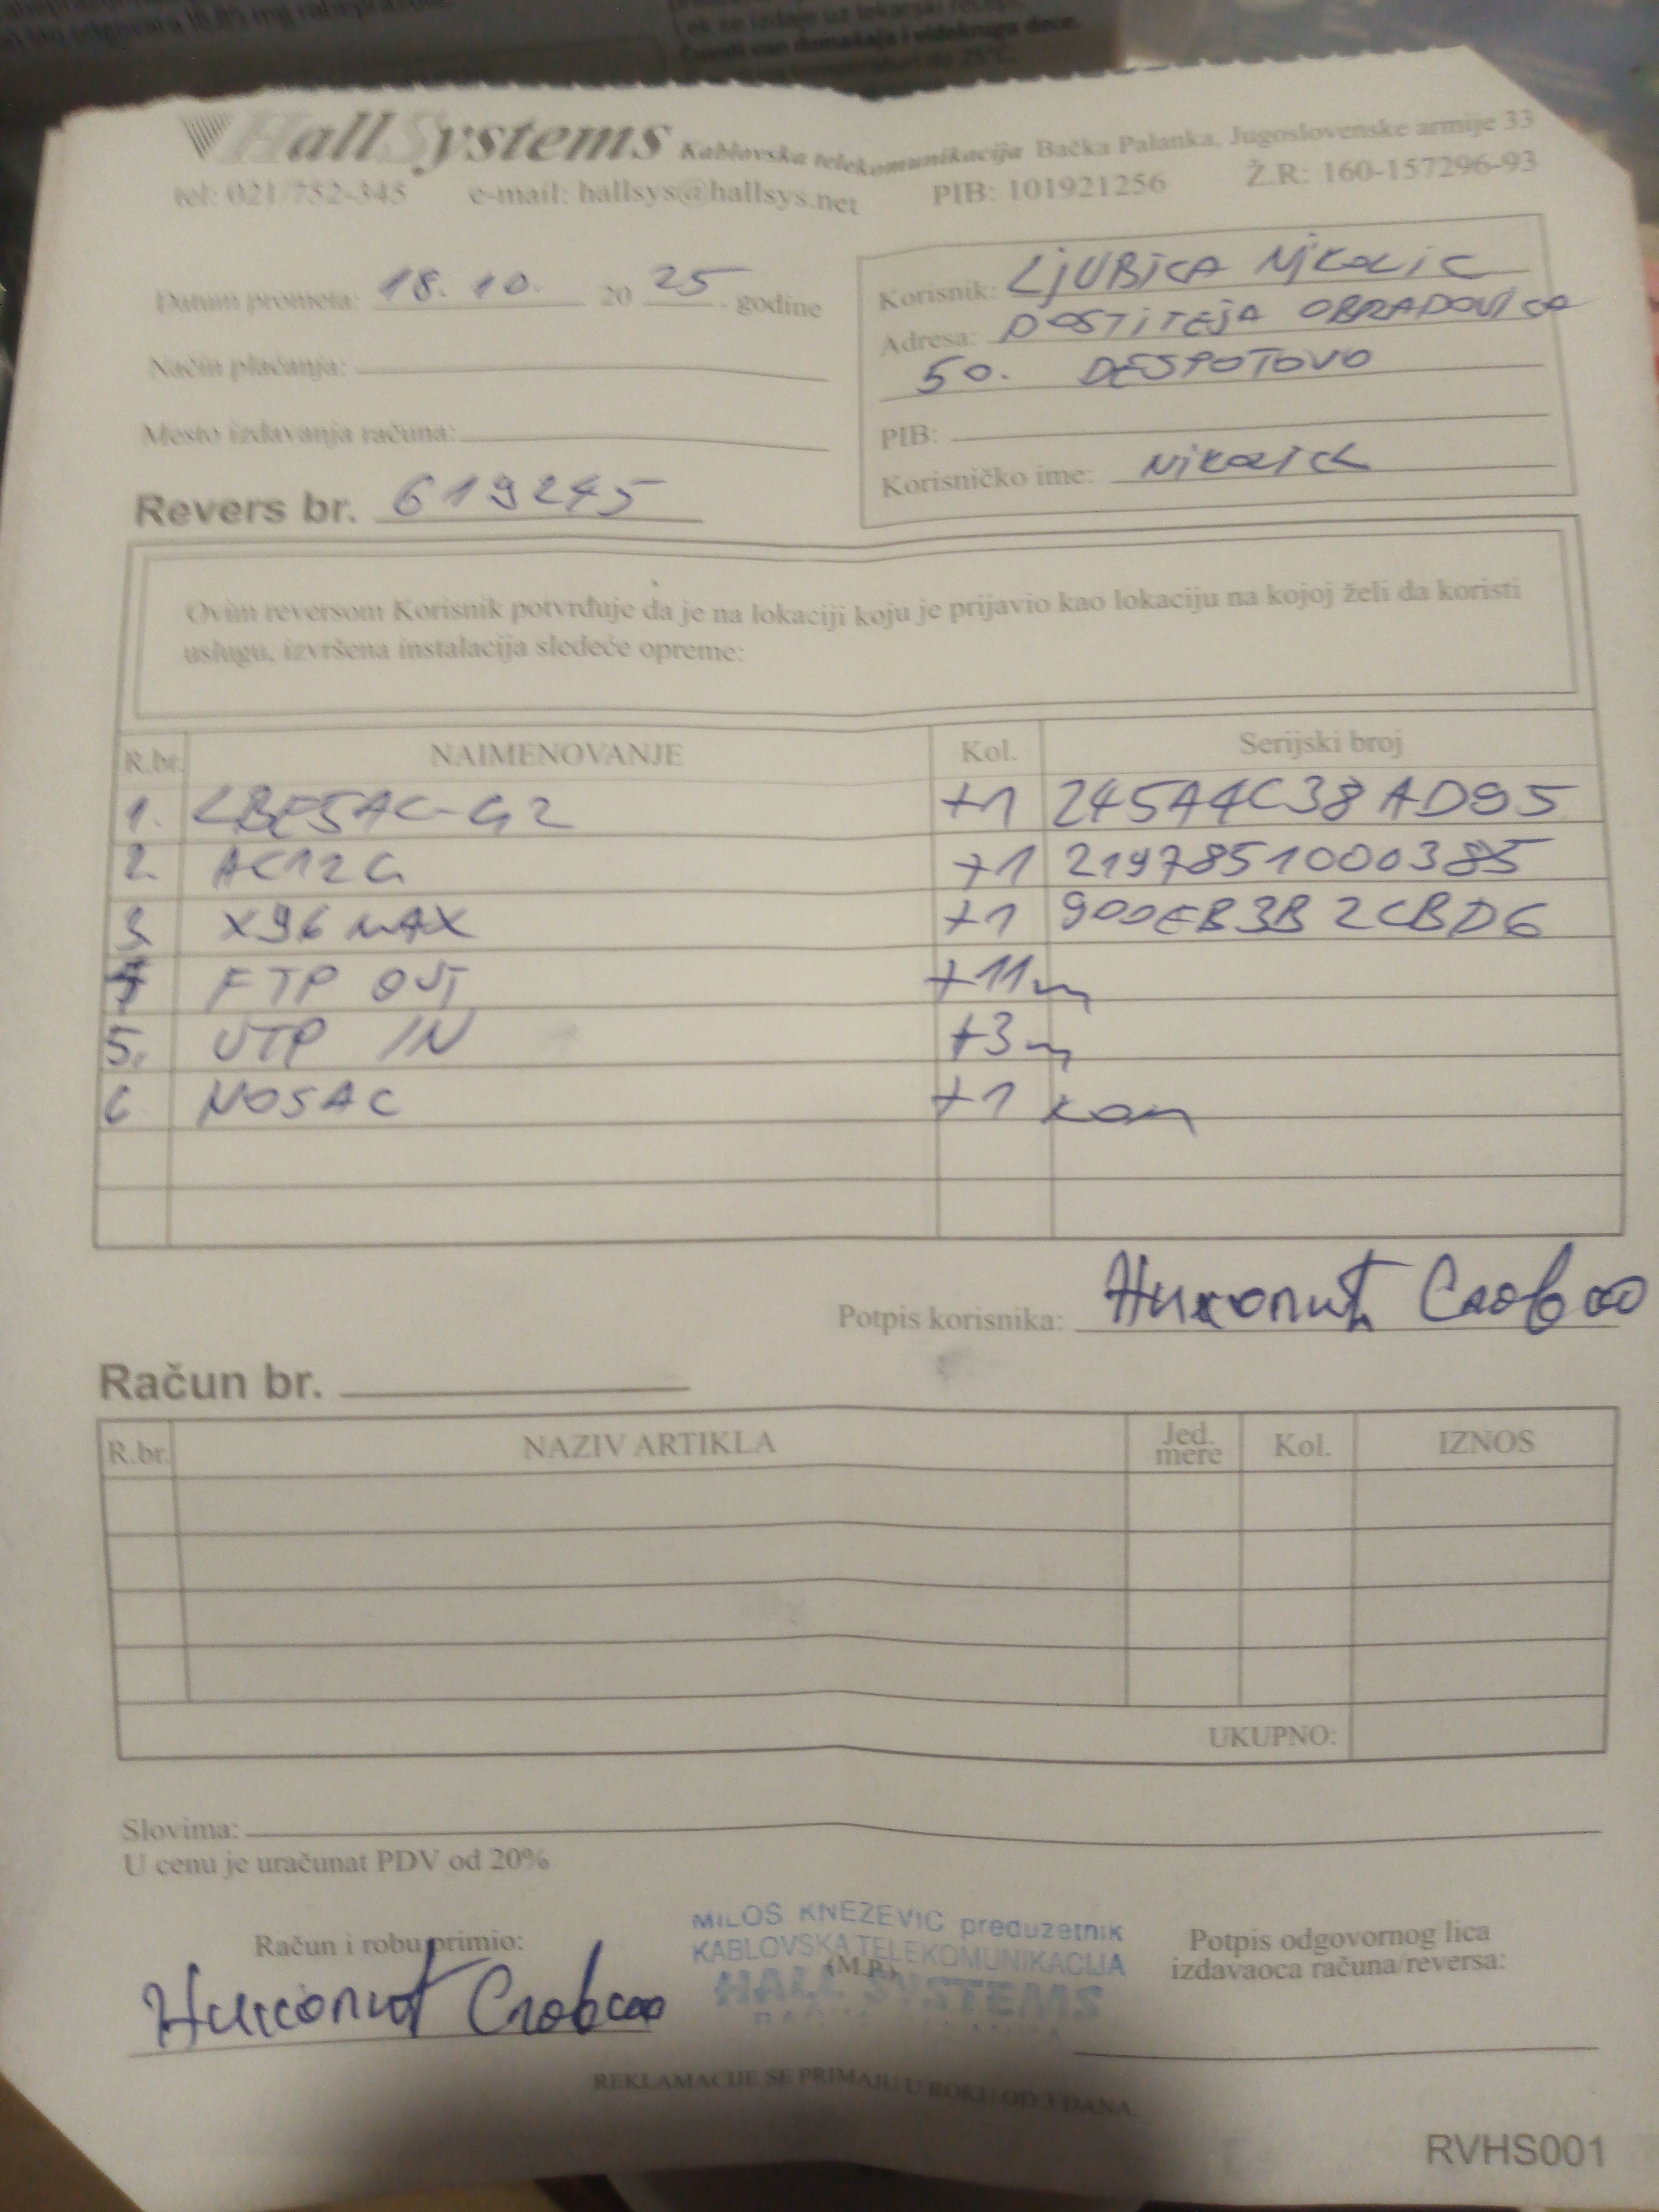 što odgovara 18,85 mg rabeprazola
ek se izdaje uz lekarski recept.
Čuvati van domašaja i vidokruga dece.
temperaturi do 25°C.
Hall Systems Kablovska telekomunikacija Bačka Palanka, Jugoslovenske armije 33
tel: 021/752-345 e-mail: hallsys@hallsys.net PIB: 101921256 Ž.R: 160-157296-93
Datum prometa: 18. 10. 20 25 . godine
Način plaćanja:
Mesto izdavanja računa:
Revers br. 619245
Korisnik: LjUBiCA NiKOLIC
Adresa: DOSTiTEJA OBRADOVICA
50. DESPOTOVO
PIB:
Korisničko ime: NiKOLICL
Ovim reversom Korisnik potvrđuje da je na lokaciji koju je prijavio kao lokaciju na kojoj želi da koristi
uslugu, izvršena instalacija sledeće opreme:
R.br. NAIMENOVANJE Kol. Serijski broj
1. LBE5AC-G2 +1 245A4C38AD95
2. AC12G +1 2197851000385
3 X96 MAX +1 900EB3B2CBD6
4 FTP OUT +11m
5. UTP IN +3m
6 NOSAC +1 kom
Potpis korisnika: Николић Славко
Račun br.
R.br. NAZIV ARTIKLA Jed. mere Kol. IZNOS
UKUPNO:
Slovima:
U cenu je uračunat PDV od 20%
Račun i robu primio:
Николић Славко
MILOS KNEZEVIC preduzetnik
KABLOVSKA TELEKOMUNIKACIJA
(M.P.)
HALL SYSTEMS
Potpis odgovornog lica
izdavaoca računa/reversa:
REKLAMACIJE SE PRIMAJU U ROKU OD 3 DANA
RVHS001